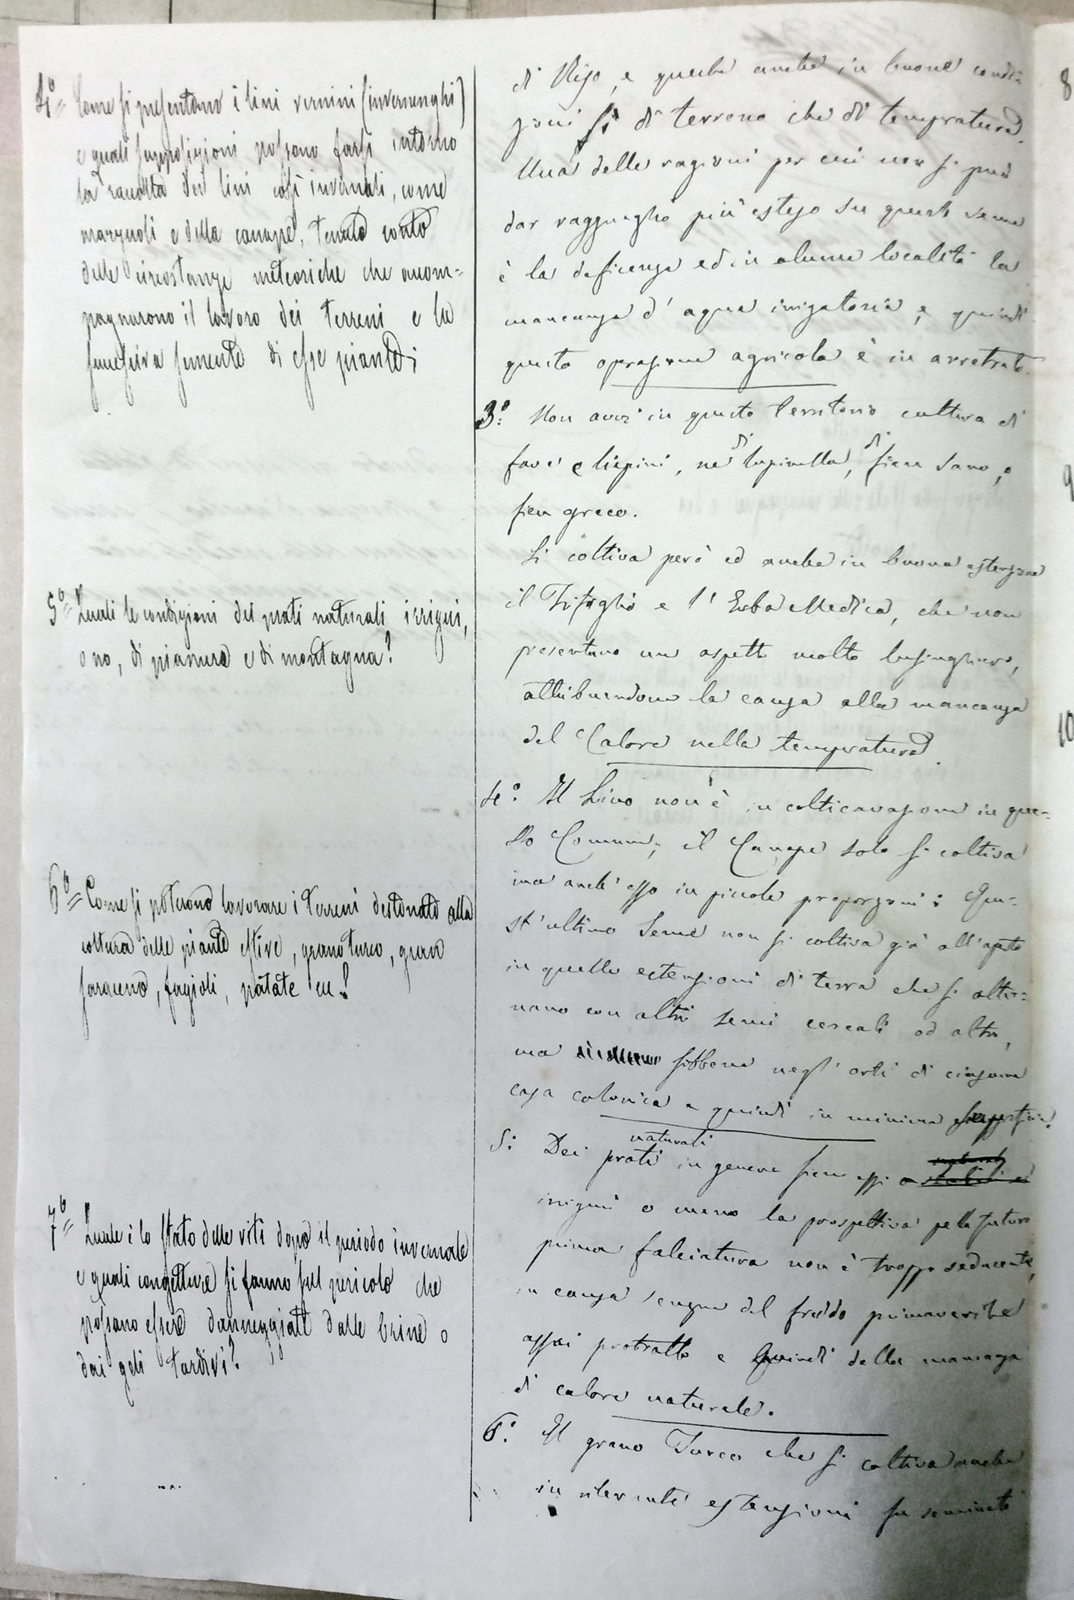 4º= Come si presentano i lini vernini (invernenghi)
e quali supposizioni possono farsi intorno
la raccolta dei lini così invernali, come
marzuoli e della canape, tenuto conto
delle circostanze meteoriche che accom=
pagnarono il lavoro dei terreni e la
semente di esse piante;
5º= Quali le condizioni dei prati naturali, irrigui,
o no, di pianura e di montagna?
6º= Come si poterono lavorare i terreni destinati alla
coltura delle piante estive, granoturco, gran
saraceno, fagioli, patate ecc?
7º= Quale è lo stato delle viti dopo il periodo invernale
e quali congetture si fanno sul pericolo che
possano essere danneggiate dalle brine o
dai geli tardivi?
di Riso, e questa anche in buone condi-
zioni sì di terreno che di tempratura.
Una delle ragioni per cui non si può
dar ragguaglio più esteso su queste seme
è la deficenza ed in alcune località la
mancanza d'aqua irrigatoria, e quindi
questa operazione agricola è in arretrato.
3º: Non avvi in questo Territorio cultura di
fave e lupini, nè di lupinella, di fieno sano, o
fien greco.
Si coltiva però ed anche in buona estenzione
il Trifoglio e l'Erba Medica, che non
presentano un aspetto molto lusinghiero,
attribuendone la causa alla mancanza
del Calore nella tempratura.
4º: Il Lino non è in colticavazione in que-
sto Comune; il Canape solo si coltiva
ma anch'esso in piccole proporzioni: Que-
st'ultimo Seme non si coltiva già all'aperto
in quelle estenzioni di terra che si alter-
nano con altri semi cereali od altri,
ma sibbene negl'orti di ciascuna
casa colonica e quindi in minima superficie.
5: Dei prati naturali in genere sien essi o
irrigui o meno la prospettiva pella futura
prima falciatura non è troppo seducente,
in causa sempre del freddo primaverile
assai protratto e quindi della mancanza
di calore naturale.
6º: Il grano Turco che si coltiva anche
in rilevanti estenzioni fu seminato
8
9
10